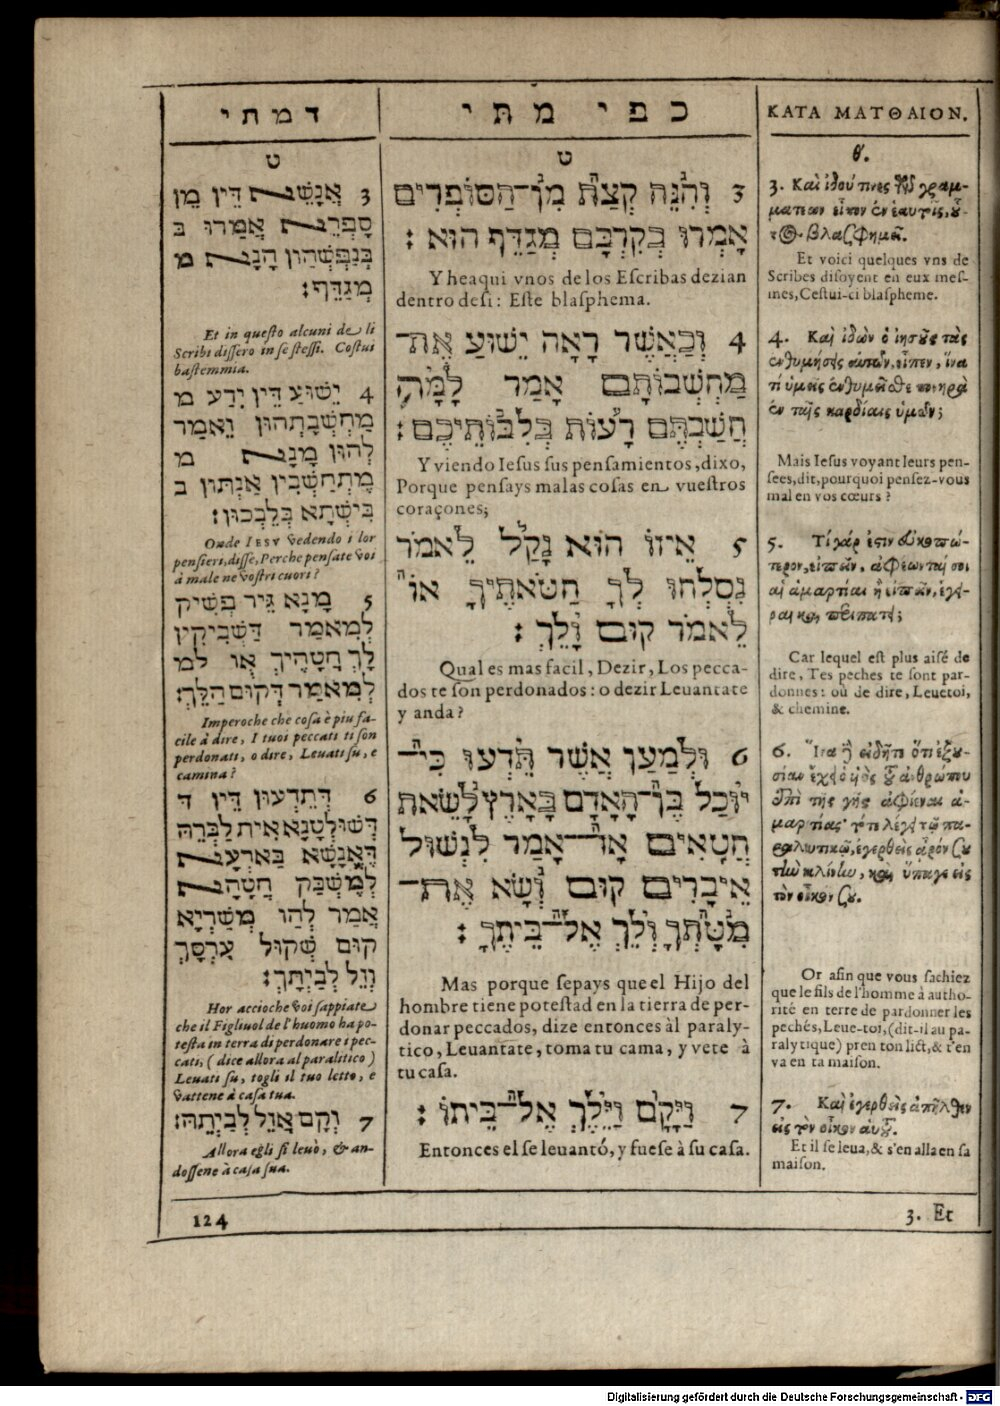 דמתי
ט
3 אֲנָשָׁא דֵּין מֵן
סָפְרֵא אֲמַרוּ ב
בְּנַפְשְׁהוּן הָנָא מ
מְגַדֵּף:
Et in questo alcuni de li
Scribi dissero in se stessi. Costui
bastemmia.
4 יֵשׁוּעַ דֵּין יְדַע מ
מַחְשְׁבָתְהוּן וֶאֲמַר
לְהוּן מָנָא מ
מֶתְחַשְּׁבִין אַנְתּוּן ב
בִּישְׁתָא בְּלֵבְכוּן:
Onde IESV vedendo i lor
pensieri, disse, Perche pensate voi
à male ne vostri cuori?
5 מָנָא גֵּיר פְּשִׁיק
לְמִאמַר דַּשְׁבִיקִין
לָךְ חֲטָהֶיךְ אֲו למ
לְמִאמַר דְּקוּם הַלֵּךְ:
Imperoche che cosa è piu fa-
cile à dire, I tuoi peccati ti son
perdonati, o dire, Leuati su, e
camina?
6 דְּתֵדְעוּן דֵּין ד
דְּשׁוּלְטָנָא אִית לַבְרֵהּ
דֶּאֲנָשָׁא בַּארְעָא
לְמֶשְׁבַּק חֲטָהָא
אֲמַר לְהַו מְשַׁרְיָא
קוּם שְׁקוּל עַרְסָךְ
וְזֵל לְבַיְתָּךְ:
Hor accioche voi sappiate
che il Figliuol de l'huomo ha po-
testa in terra di perdonare i pec-
cati, ( dice allora al paralitico )
Leuati su, togli il tuo letto, e
vattene à casa tua.
7 וְקָם אֲזַל לְבַיְתֵהּ:
Allora egli si leuò, & an-
dossene à casa sua.
כפי מתי
ט
3 וְהִנֵּה קְצָת מִן־הַסּוֹפְרִים
אָמְרוּ בְּקִרְבָּם מְגַדֵּף הוּא:
Y heaqui vnos de los Escribas dezian
dentro de si: Este blasphema.
4 וְכַאֲשֶׁר רָאָה יֵשׁוּעַ אֶת־
מַחְשְׁבוֹתָם אָמַר לָמָּה
חֲשַׁבְתֶּם רָעוֹת בְּלִבּוֹתֵיכֶם:
Y viendo Iesus sus pensamientos, dixo,
Porque pensays malas cosas en vuestros
coraçones;
5 אֵיזוֹ הוּא נָקֵל לֵאמֹר
נִסְלְחוּ לְךָ חַטֹּאתֶיךָ אוֹ
לֵאמֹר קוּם וָלֵךְ:
Qual es mas facil, Dezir, Los pecca-
dos te son perdonados: o dezir Leuantate
y anda?
6 וּלְמַעַן אֲשֶׁר תֵּדְעוּ כִּי־
יוּכַל בֶּן־הָאָדָם בָּאָרֶץ לָשֵׂאת
חֲטָאִים אָז־אָמַר לִנְשׁוּל
אֵיבָרִים קוּם וְשָׂא אֶת־
מִטָּתְךָ וְלֵךְ אֶל־בֵּיתֶךָ:
Mas porque sepays que el Hijo del
hombre tiene potestad en la tierra de per-
donar peccados, dize entonces àl paraly-
tico, Leuantate, toma tu cama, y vete à
tu casa.
7 וַיָּקָם וַיֵּלֶךְ אֶל־בֵּיתוֹ:
Entonces el se leuantó, y fuese à su casa.
ΚΑΤΑ ΜΑΤΘΑΙΟΝ.
θ'.
3. Καὶ ἰδού τινες τῶν γραμ-
ματέων εἶπον ἐν ἑαυτοῖς, οὗ-
τος βλασφημεῖ.
Et voici quelques vns de
Scribes disoyent en eux mes-
mes, Cestui-ci blaspheme.
4. Καὶ ἰδὼν ὁ ἰησοῦς τὰς
ἐνθυμήσεις αὐτῶν, εἶπεν, ἵνα
τί ὑμεῖς ἐνθυμεῖσθε πονηρὰ
ἐν ταῖς καρδίαις ὑμῶν;
Mais Iesus voyant leurs pen-
sees, dit, pourquoi pensez-vous
mal en vos cœurs?
5. Τί γάρ ἐστιν εὐκοπώ-
τερον, εἰπεῖν, ἀφέωνταί σοι
αἱ ἁμαρτίαι ἢ εἰπεῖν, ἔγει-
ραι καὶ περιπάτει;
Car lequel est plus aisé de
dire, Tes peches te sont par-
donnes: où de dire, Leuetoi,
& chemine.
6. Ἵνα δὲ εἰδῆτε ὅτι ἐξου-
σίαν ἔχει ὁ υἱὸς τοῦ ἀνθρώπου
ἐπὶ τῆς γῆς ἀφιέναι ἁ-
μαρτίας· τότε λέγει τῷ πα-
ραλυτικῷ, ἐγερθεὶς ἆρόν σου
τὴν κλίνην, καὶ ὕπαγε εἰς
τὸν οἶκόν σου.
Or afin que vous sachiez
que le fils de l'homme à autho-
rité en terre de pardonner les
pechés, Leue-toi, (dit-il au pa-
ralytique) pren ton lict, & t'en
va en ta maison.
7. Καὶ ἐγερθεὶς ἀπῆλθεν
εἰς τὸν οἶκον αὑτοῦ.
Et il se leua, & s'en alla en sa
maison.
124
3. Et
Digitalisierung gefördert durch die Deutsche Forschungsgemeinschaft - DFG